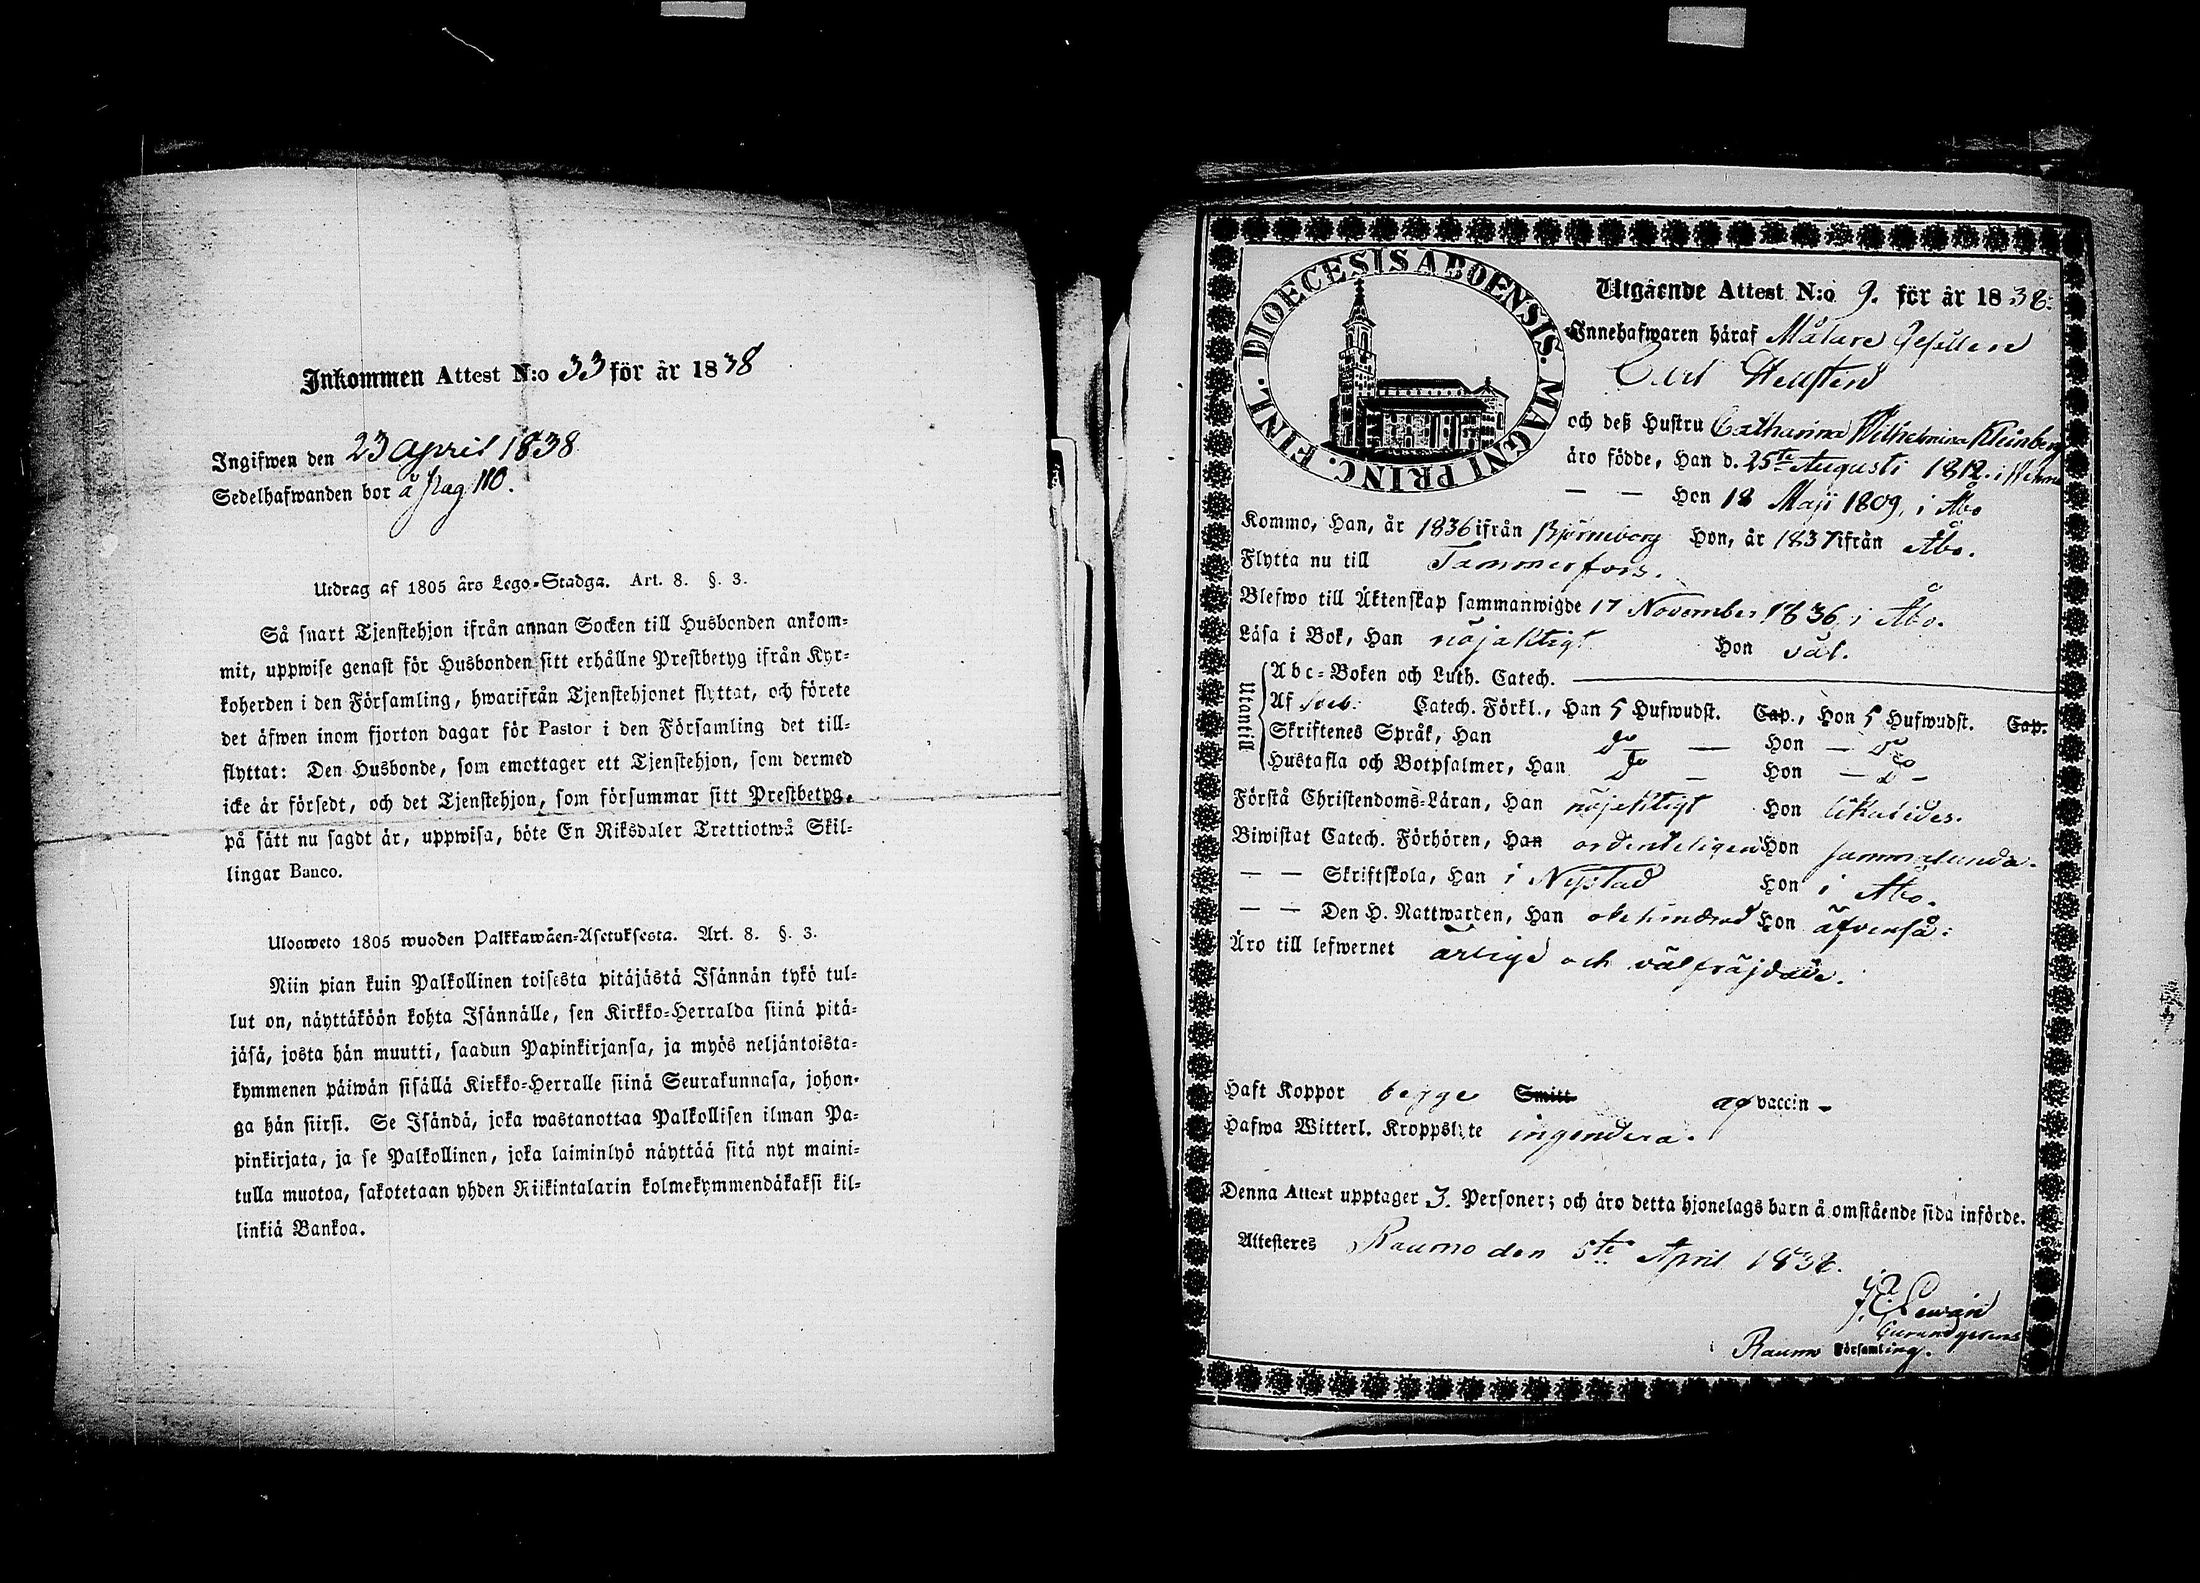 Inkommen Attest N:o 33 för år 1838
Ingifwen den 23 April 1838
Sedelhafwanden bor å pag. 110.
Utdrag af 1805 års Lego-Stadga. Art. 8. §. 3.
Så snart Tjenstehjon ifrån annan Socken till Husbonden ankom-
mit, uppwise genast för Husbonden sitt erhållne Prestbetyg ifrån Kyr-
koherden i den Församling, hwarifrån Tjenstehjonet flyttat, och förete
det äfwen inom fjorton dagar för Pastor i den Församling det till-
flyttat: Den Husbonde, som emottager ett Tjenstehjon, som dermed
icke är försedt, och det Tjenstehjon, som försummar sitt Prestbetyg,
på sätt nu sagdt är, uppwisa, böte En Riksdaler Trettiotwå Skil-
lingar Banco.
Ulosweto 1805 wuoden Palkkawäen-Asetuksesta. Art. 8. §. 3.
Niin pian kuin Palkollinen toisesta pitäjästä Isännän tykö tul-
lut on, näyttäköön kohta Isännälle, sen Kirkko-Herralda siinä pitä-
jäsä, josta hän muutti, saadun Papinkirjansa, ja myös neljäntoista-
kymmenen päiwän sisällä Kirkko-Herralle siinä Seurakunnasa, johon-
ga hän siirsi. Se Isändä, joka wastanottaa Palkollisen ilman Pa-
pinkirjata, ja se Palkollinen, joka laiminlyö näyttää sitä nyt maini-
tulla muotoa, sakotetaan yhden Riikintalarin kolmekymmendäkaksi kil-
linkiä Bankoa.
DIOECESIS ABOENSIS. MAGNI PRINC. FINL.
Utgående Attest N:o 9. för år 1838.
Innehafwaren häraf Målare Gesällen
Carl Hellsten
och deß Hustru Catharina Wilhelmina Kleinberg
äro födde, Han d. 25te Augusti 1812. i
— — Hon 18 Maji 1809, i Åbo
Kommo, Han, år 1836 ifrån Björneborg Hon, år 1837 ifrån Åbo.
Flytta nu till Tammerfors.
Blefwo till Äktenskap sammanwigde 17 November 1836 i Åbo.
Läsa i Bok, Han nöjaktigt Hon väl.
Utantill
Abc-Boken och Luth. Catech. —
Af Sveb. Catech. Förkl., Han 5 Hufwudst. Cap., Hon 5 Hufwudst. Cap.
Skriftenes Språk, Han Do — Hon — Do
Hustafla och Botpsalmer, Han Do — Hon — Do —
Förstå Christendoms-Läran, Han nöjaktigt Hon likaledes.
Biwistat Catech. Förhören, Han ordenteligen Hon sammalunda.
— — Skriftskola, Han i Nystad Hon i Åbo.
— — Den H. Nattwarden, Han obehindrad Hon äfvenså.
Äro till lefwernet ärlige och välfräjdade.
Haft Koppor begge Smitt. af vaccin —
Hafwa Witterl. Kroppslyte ingendera.
Denna Attest upptager 3. Personer; och äro detta hjonelags barn å omstående sida införde.
Attesteres Raumo den 5te April 1838.
Raumo Församling.